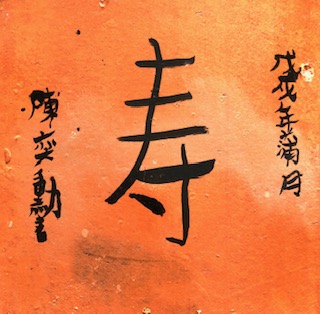 戊戌年蒲月
寿
陳奕勳書